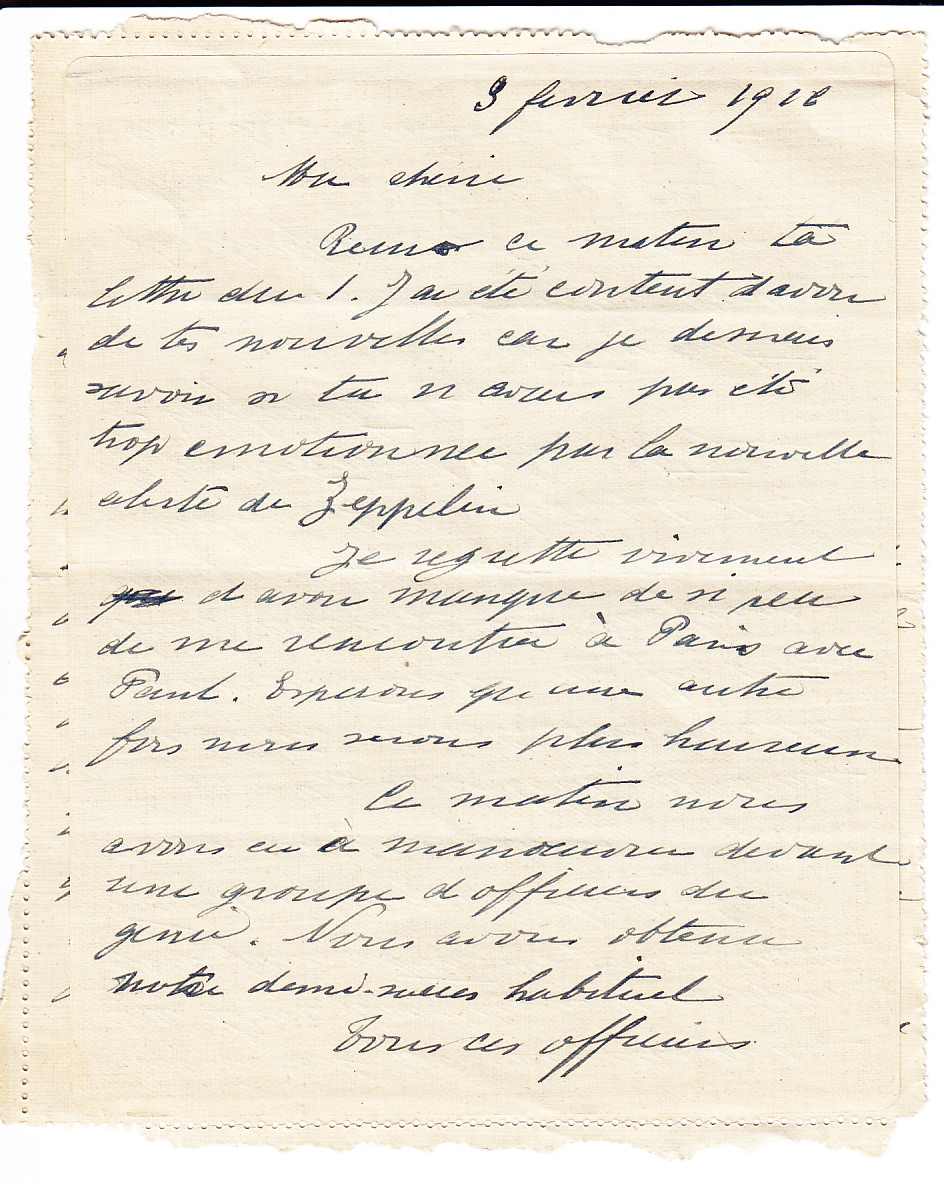 3 fevrier 1918
Ma cherie
Recu ce matin ta
lettre du 1. J ai été content d avoir
de tes nouvelles car je desirais
savoir si tu n avais pas été
trop emotionnee par la nouvelle
alerte de Zeppelin
Je regrette vivement
d avoir manque de si peu
de me rencontrer à Paris avec
Paul. Esperons qu une autre
fois nous serons plus heureux
Ce matin nous
avons eu à manoeuvrer devant
une groupe d officiers du
genie. Nous avons obtenu
notre demi-succes habituel
Tous ces officiers